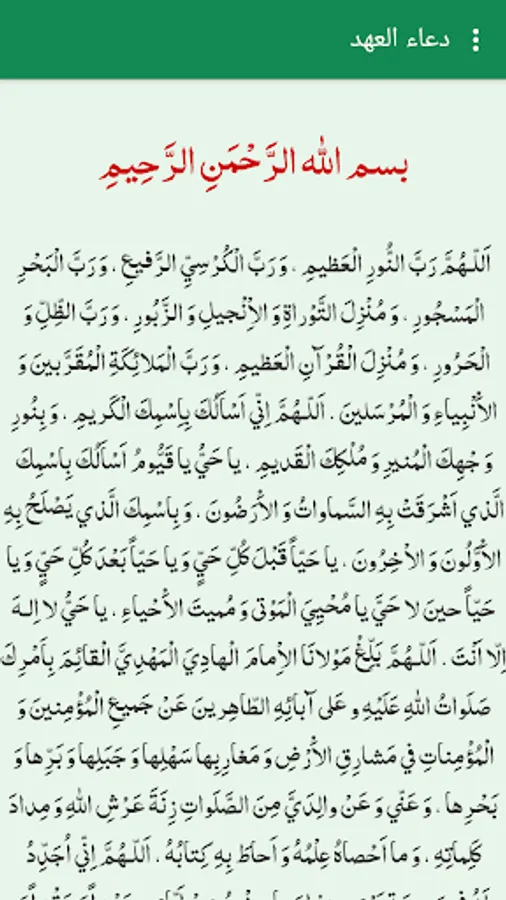 دعاء العهد
بسم الله الرَّحْمَنِ الرَّحِيمِ
اَللّـهُمَّ رَبَّ النُّورِ الْعَظيمِ ، وَرَبَّ الْكُرْسِيِّ الرَّفيعِ ، وَرَبَّ الْبَحْرِ
الْمَسْجُورِ ، وَمُنْزِلَ التَّوْراةِ وَالاِْنْجيلِ وَالزَّبُورِ ، وَرَبَّ الظِّلِّ وَ
الْحَرُورِ ، وَمُنْزِلَ الْقُرْآنِ الْعَظيمِ ، وَرَبَّ الْمَلائِكَةِ الْمُقَرَّبينَ وَ
الاَْنْبِياءِ وَالْمُرْسَلينَ . اَللّـهُمَّ اِنّي اَسْاَلُكَ بِاِسْمِكَ الْكَريمِ ، وَبِنُورِ
وَجْهِكَ الْمُنيرِ وَمُلْكِكَ الْقَديمِ . يا حَيُّ يا قَيُّومُ اَسْاَلُكَ بِاسْمِكَ
الَّذي اَشْرَقَتْ بِهِ السَّماواتُ وَالاَْرَضُونَ ، وَبِاسْمِكَ الَّذي يَصْلَحُ بِهِ
الاَْوَّلُونَ وَالاْخِرُونَ . يا حَيّاً قَبْلَ كُلِّ حَيٍّ وَيا حَيّاً بَعْدَ كُلِّ حَيٍّ وَيا
حَيّاً حينَ لا حَيَّ يا مُحْيِيَ الْمَوْتى وَمُميتَ الاَْحْياءِ ، يا حَيُّ لا اِلـهَ
اِلّا اَنْتَ . اَللّـهُمَّ بَلِّغْ مَوْلانَا الاِْمامَ الْهادِيَ الْمَهْدِيَّ الْقائِمَ بِاَمْرِكَ
صَلَواتُ اللهِ عَلَيْهِ و عَلى آبائِهِ الطّاهِرينَ عَنْ جَميعِ الْمُؤْمِنينَ وَ
الْمُؤْمِناتِ في مَشارِقِ الاَْرْضِ وَمَغارِبِها سَهْلِها وَجَبَلِها وَبَرِّها وَ
بَحْرِها ، وَعَنّي وَعَنْ والِدَيَّ مِنَ الصَّلَواتِ زِنَةَ عَرْشِ اللهِ وَمِدادَ
كَلِماتِهِ ، وَما اَحْصاهُ عِلْمُهُ وَاَحاطَ بِهِ كِتابُهُ . اَللّـهُمَّ اِنّي اُجَدِّدُ